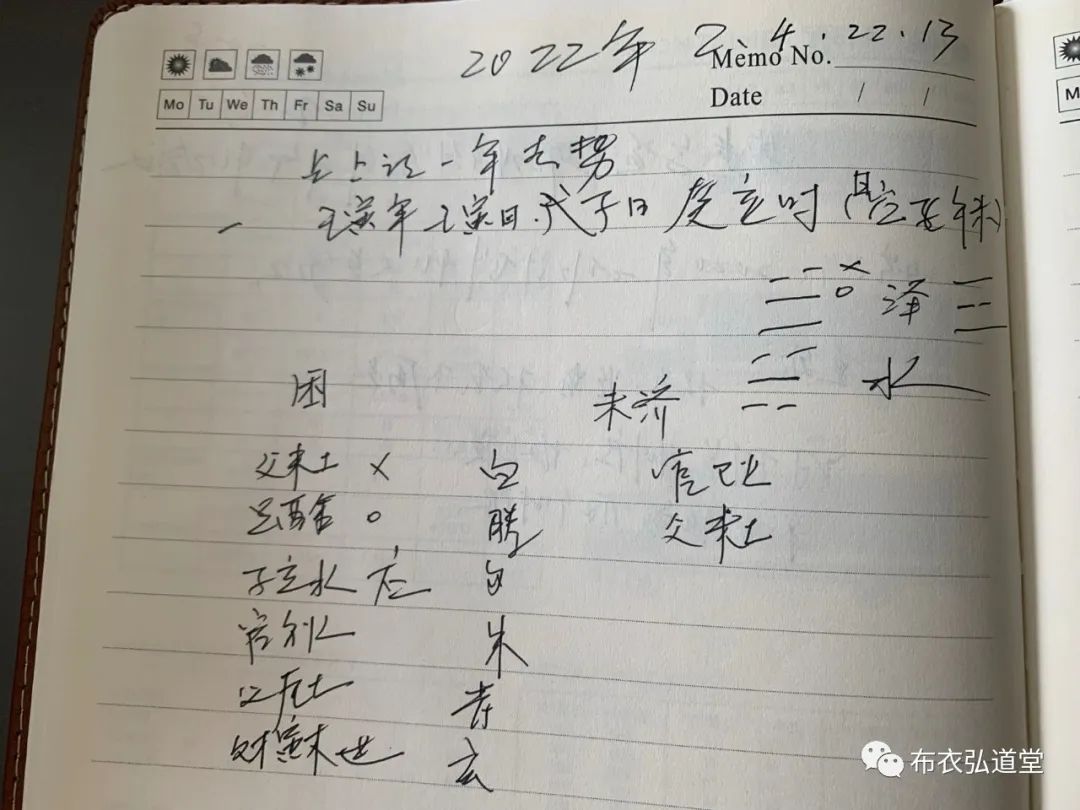 2022年 2、4.22.13
Memo No.
Mo Tu We Th Fr Sa Su
Date / /
占上证一年走势
壬寅年壬寅日.戊子日癸亥时
泽
水
困 未济
父未土 × 白 官巳火
兄酉金 ○ 腾 父未土
子亥水 应 勾
官午火 朱
父辰土 青
财寅木 世 玄
布衣弘道堂